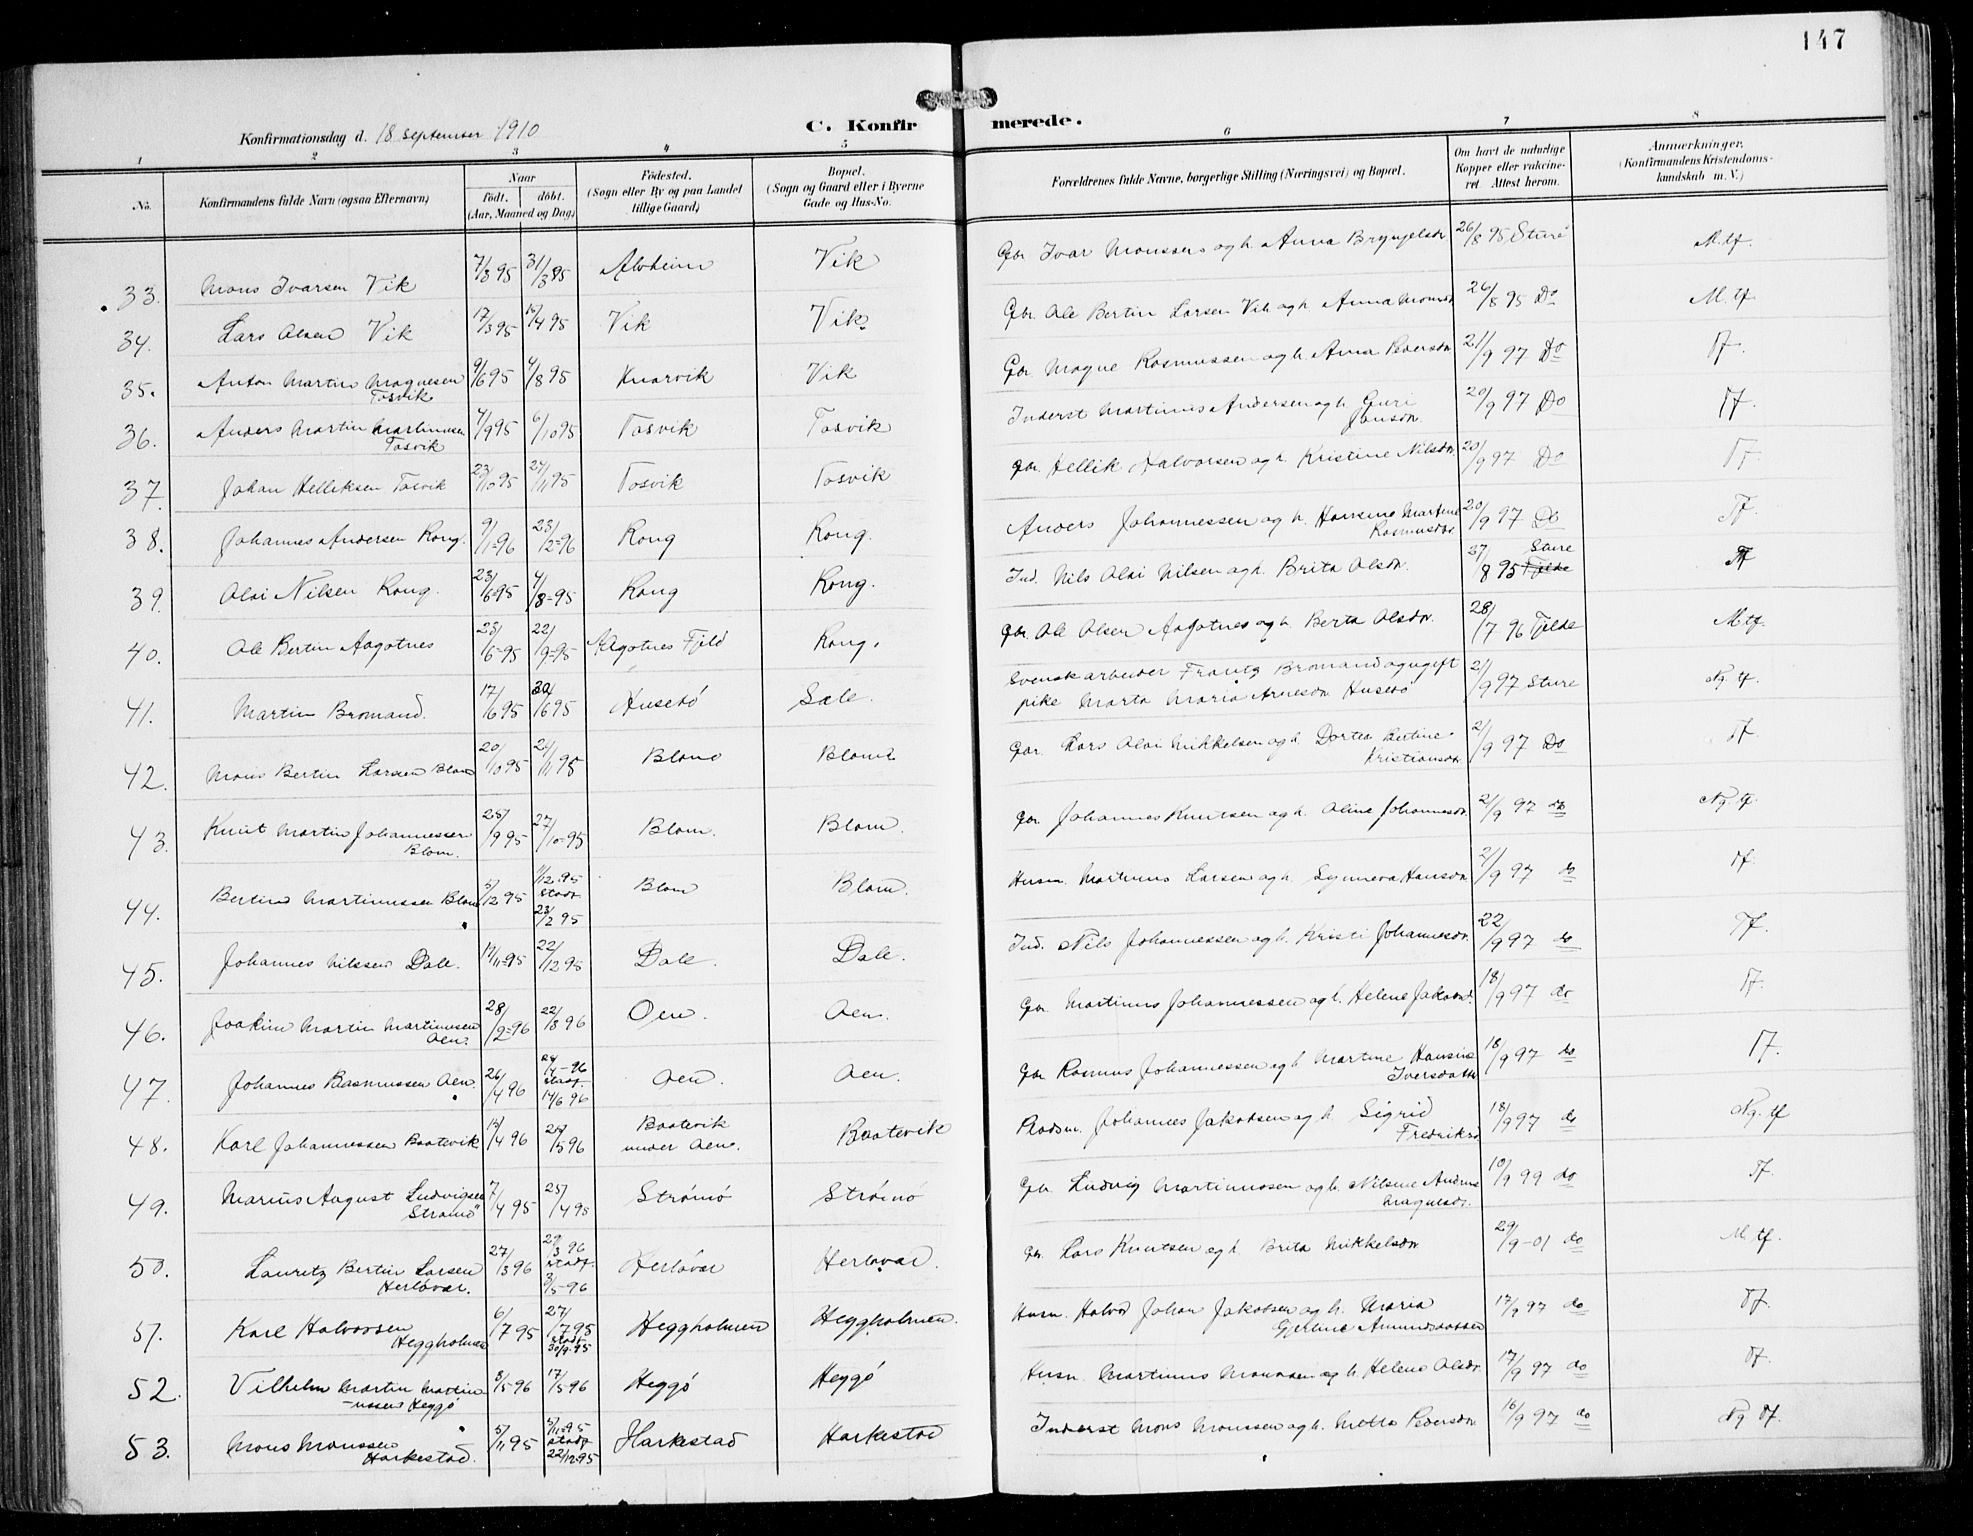 147
Konfirmationsdag d. 18 september 1910
C. Konfirmerede.
1 2 3 4 5 6 7 8
No. Konfirmandens fulde Navn (ogsaa Efternavn) Naar født. døbt. (Aar, Maaned og Dag) Födested. (Sogn eller By og paa Landet tillige Gaard) Bopæl. (Sogn og Gaard eller i Byerne Gade og Hus-No. Forældrenes fulde Navne, borgerlige Stilling (Næringsvei) og Bopæl. Om havt de naturlige Kopper eller vakcineret. Attest herom. Anmærkninger, (Konfirmandens Kristendomskundskab m. V.)
33. Mons Ivarsen Vik 7/3 95 31/3 95 Alvheim Vik Gbr. Ivar Monssen og h. Anna Brynjelsdr 26/8 95 Sture M. tf.
34. Lars Olsen Vik 17/3 95 15/4 95 Vik Vik. Gbr. Ole Bertin Larsen Vik og h. Anna Monsdr 26/8 95 Do M. tf.
35. Anton Martin Magnesen Tosvik 9/6 95 4/8 95 Knarvik Vik Gbr. Magne Rasmussen og h. Anna Pedersdr 21/9 97 Do Tf.
36. Anders Martin Martinusen Tosvik 4/9 95 6/10 95 Tosvik Tosvik Inderst Martinus Andersen og h. Guri Jonsdr. 20/9 97 Do Tf.
37. Johan Helliksen Tosvik 23/10 95 24/11 95 Tosvik Tosvik Gbr. Hellik Halvorsen og h. Kristine Nilsdr 20/9 97 Do Tf
38. Johannes Andersen Rong. 9/1-96 23/2-96 Rong Rong. Anders Johannessen og h. Hansine Martine Rasmusdr 20/9 97 Do Tf.
39. Olai Nilsen Rong. 23/6-95 4/8-95 Rong Rong. Ind. Nils Olai Nilsen og h. Brita Olsdr. 27/8 95 Sture Fjelde Tf
40. Ole Bertin Aagotnes 23/6-95 22/9-95 Aagotnes Fjeld Rong. Gbr. Ole Olsen Aagotnes og h. Berta Olsdr. 28/7 96 Fjelde M. tf.
41. Martin Bromand. 17/6 95 30/6 95 Husebø Sæle. Svensk arbeider Frantz Bromand og ugift pike Marta Maria Arnesdr Husebø 21/9 97 Sture Ng. tf.
42. Mons Bertin Larsen Blom 20/10 95 24/11 95 Blom Blom Gbr. Lars Olai Mikkelsen og h. Dortea Bertine Kristiansdr 21/9 97 Do Tf
43. Knut Martin Johannessen Blom. 25/9 95 27/10-95 Blom. Blom. Gbr. Johannes Knutsen og h. Oline Johannesdr. 21/9 97 do Ng. tf.
44. Bertin Martinussen Blom 5/12 95 11/12.95 stadf. 23/2 95 Blom Blom. Husm. Martinus Larsen og h. Synneva Hansdr 21/9 97 do Tf.
45. Johannes Nilssen Dale. 14/11-95 22/12 95 Dale. Dale. Ind. Nils Johannessen og h. Kristi Johannesdr. 22/9 97 do Tf.
46. Joakim Martin Martinusen Oen. 28/2-96 22/3 96 Oen Oen. Gbr. Martinus Johannessen og h. Helene Jakobsd. 18/9 97 do Tf.
47. Johannes Rasmussen Oen. 26/4 96 stadf. 14/6 96 Oen. Oen. Gbr Rasmus Johannessen og h Martine Hansine Iversdatter 18/9 97 do Tf.
48. Karl Johannessen Baatevik 12/4 96 25/5 96 Baatevik under Oen. Baatevik Pladsm. Johannes Jakobsen og h. Sigrid Fredriksd 18/9 97 do Ng. tf
49. Marius August Ludvigsen Strømø 7/4 95 25/4 95 Strømø Strømø Gbr. Ludvig Martinussen og h. Nilsine Andrea Magnesdr. 10/9 99 do Tf.
50. Lauritz Bertin Larsen Herløvær. 27/3 96 29/3 96 stadf. 3/5-96 Herløvær Herløvær. Gbr. Lars Knutsen og h. Brita Mikkelsdr 29/9-01 do M. tf.
51. Karl Halvorsen Heggholmen 6/7 95 27/7 95 stadf. 30/9 95 Heggholmen Heggholmen. Husm. Halvor Johan Jakobsen og h. Maria Gjertine Amundsdatter 17/9 97 do Tf.
52. Vilhelm Martin Martinussen Heggø 3/5-96 17/5-96 Heggø Heggø Husm. Martinus Monssen og h. Helene Olsdr. 17/9 97 do Tf.
53. Mons Monssen Harkestad. 5/11 95 5/11-95 stadf. 22/12-95 Harkestad Harkestad Inderst Mons Monssen og h. Metta Pedersdr 16/9 97 do Ng Tf.